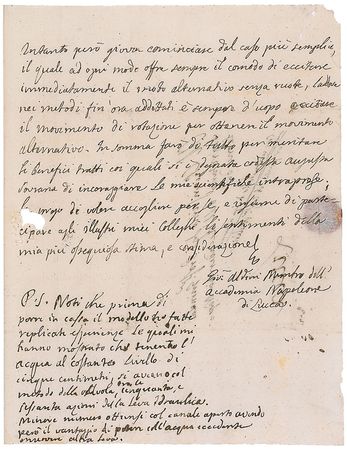 Intanto però giova cominciare dal caso più semplice,
il quale ad ogni modo offre sempre il comodo di eccitare
immediatamente il moto alternativo senza ruote, laddove
nei metodi fin'ora additati è sempre d'uopo eccitare
il movimento di rotazione per ottenere il movimento
alternativo. In somma farò di tutto per meritare
i benefici tratti coi quali si è degnata codesta augusta
Sovrana di incoraggiare le mie scientifiche intraprese,
La prego di volere accogliere per se, e insieme di parte-
cipare agli illustri miei Colleghi i sentimenti della
mia più ossequiosa stima, e considerazione
Gio: Aldini Membro dell'
Accademia Napoleone
di Lucca.
P.S. Noti che prima di
porre in cassa il modello ho fatte
replicati esperienze le quali mi
hanno mostrato che tenuto l'
acqua al costante livello di
cinque centimetri, si avea col
metodo della valvola, ora cinquanta, e
sessanta azioni della leva Idraulica.
Minore numero ottiensi col canale aperto avendo
però il vantaggio di potere coll'acqua eccedente
muovere altra leva.